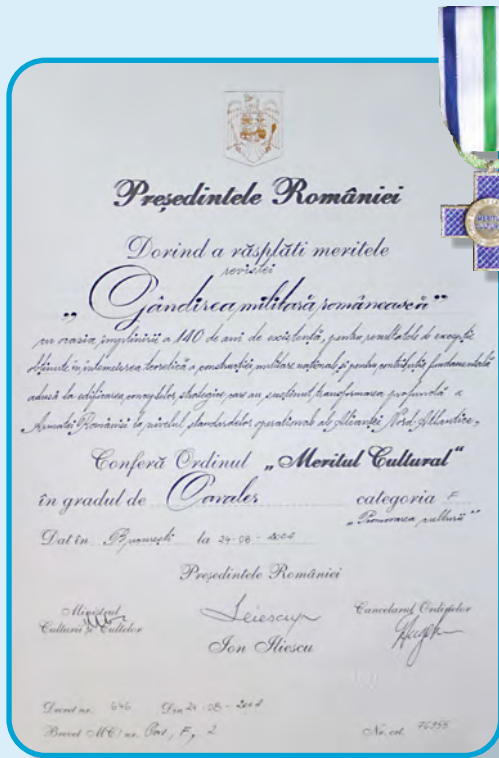 Președintele României
Dorind a răsplăti meritele
revistei
„Gândirea militară românească”
cu ocazia împlinirii a 140 de ani de existență, pentru rezultatele de excepție
obținute în întemeierea teoretică a construcției militare naționale și pentru contribuția fundamentală
adusă la edificarea conceptelor strategice care au susținut transformarea profundă a
Armatei României la nivelul standardelor operaționale ale Alianței Nord-Atlantice,
Conferă Ordinul „Meritul Cultural”
în gradul de Cavaler categoria F
„Promovarea culturii”
Dat în București la 24-08-2004
Președintele României
Ministrul
Culturii și Cultelor
Cancelarul Ordinelor
Ion Iliescu
Decret nr. 646 Din 24-08-2004
Brevet MC/nr. Cav, F, 2
Nr. crt.
MERITUL